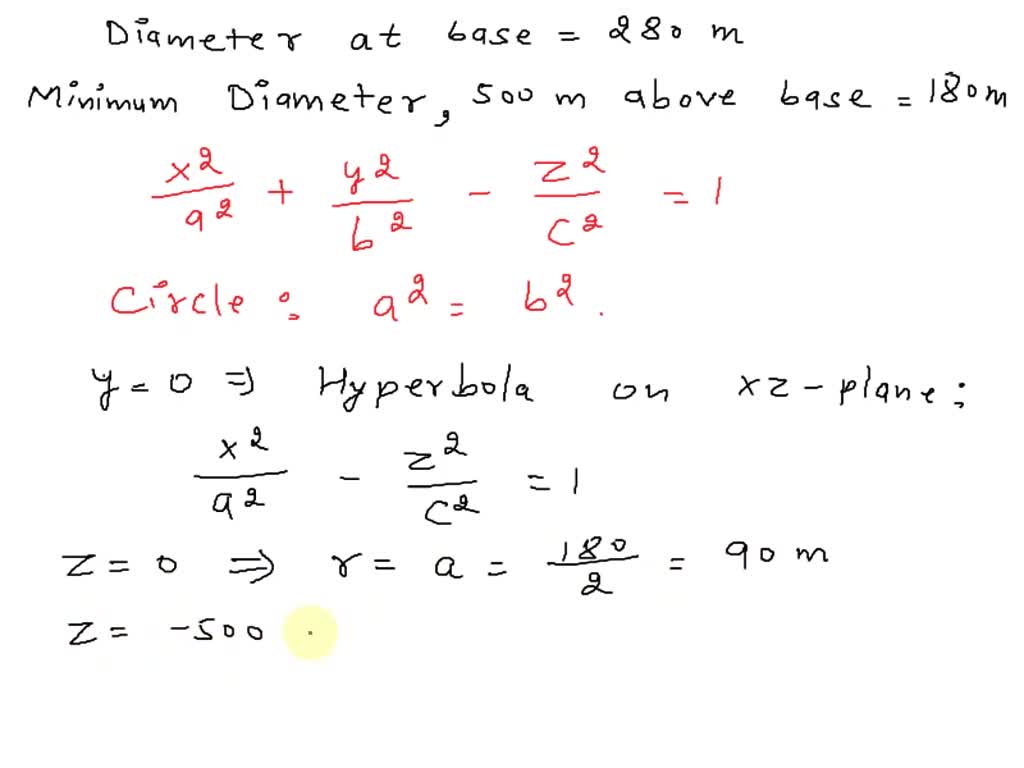 Diameter at base = 280 m
Minimum Diameter, 500 m above base = 180m
x²/a² + y²/b² - z²/c² = 1
Circle : a² = b² .
y = 0 ⇒ Hyperbola on xz-plane :
x²/a² - z²/c² = 1
z = 0 ⇒ r = a = 180/2 = 90 m
z = -500